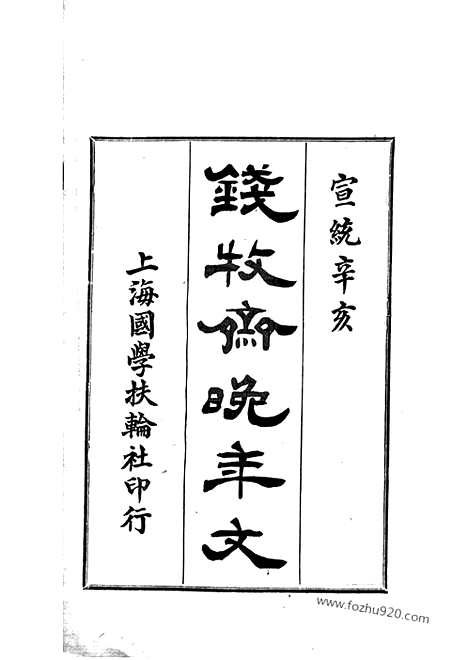 宣統辛亥
錢牧齋晚年文
上海國學扶輪社印行
www.fozhu920.com